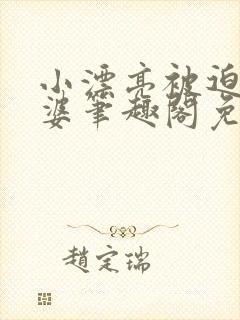 小漂亮被迫
婆笔趣阁免
趙定瑞